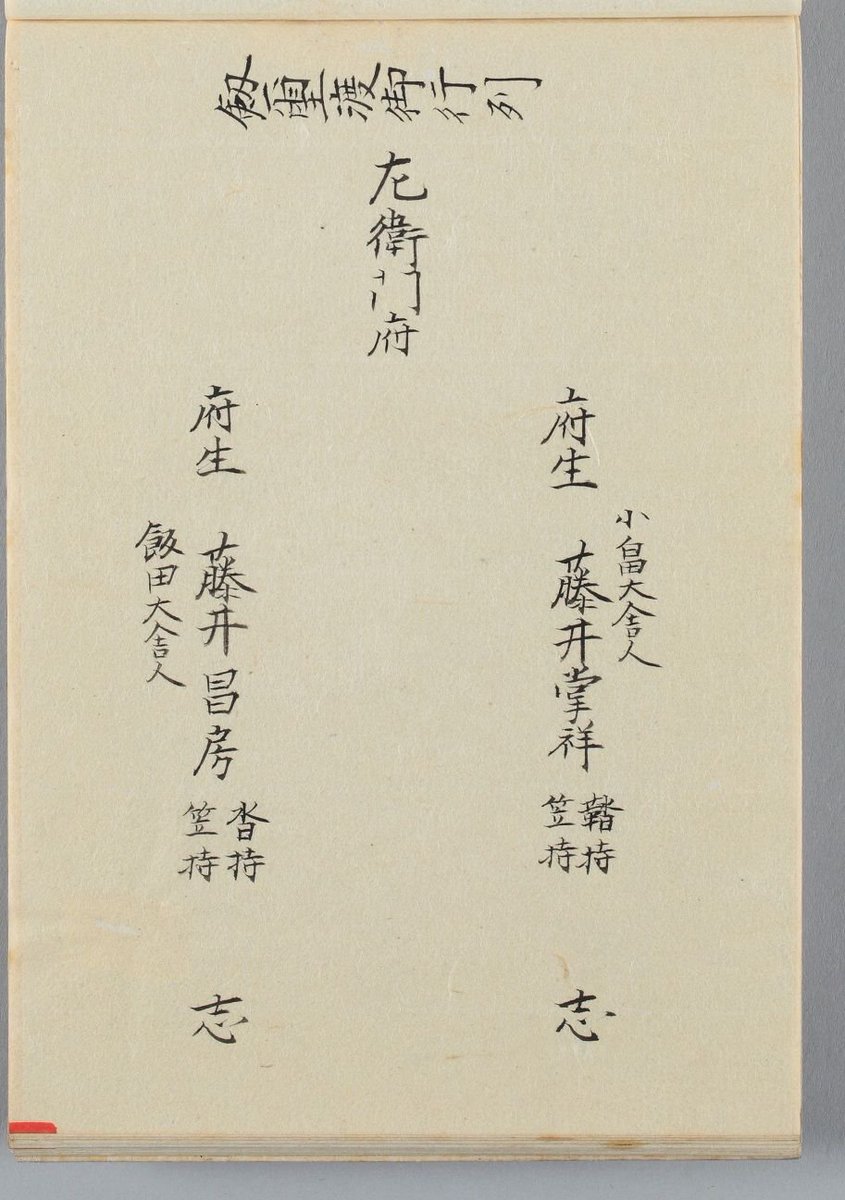 劔璽渡御行列
左衛門府
府生
小畠大舎人
藤井掌祥
鞜持
笠持
志
府生
藤井昌房
飯田大舎人
沓持
笠持
志